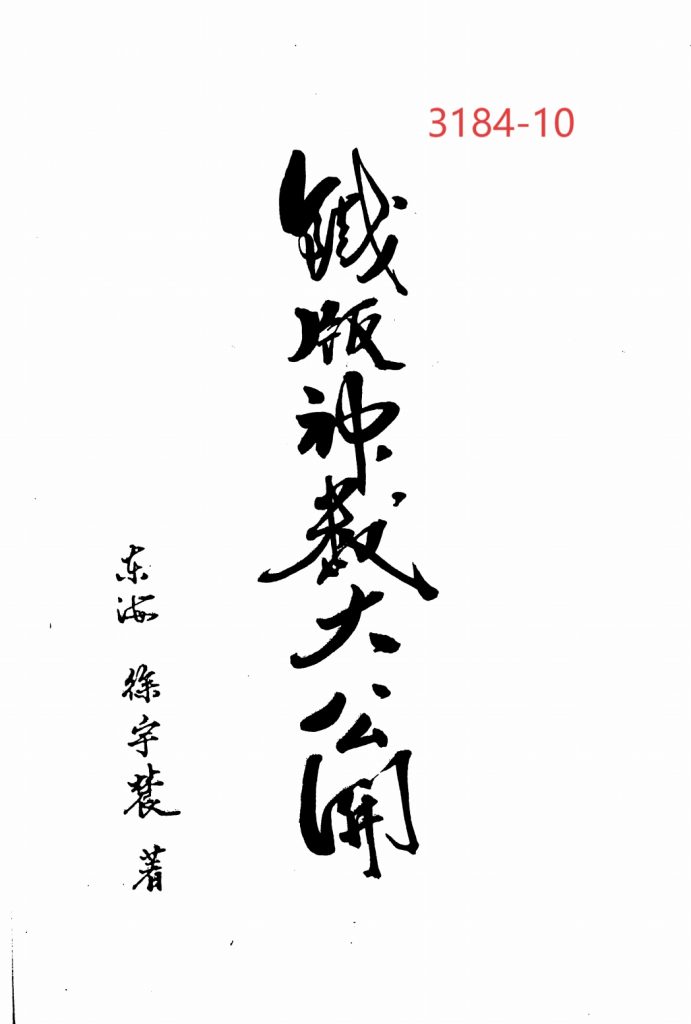 3184-10
鐵版神數大公開
东海 徐宇辳 著